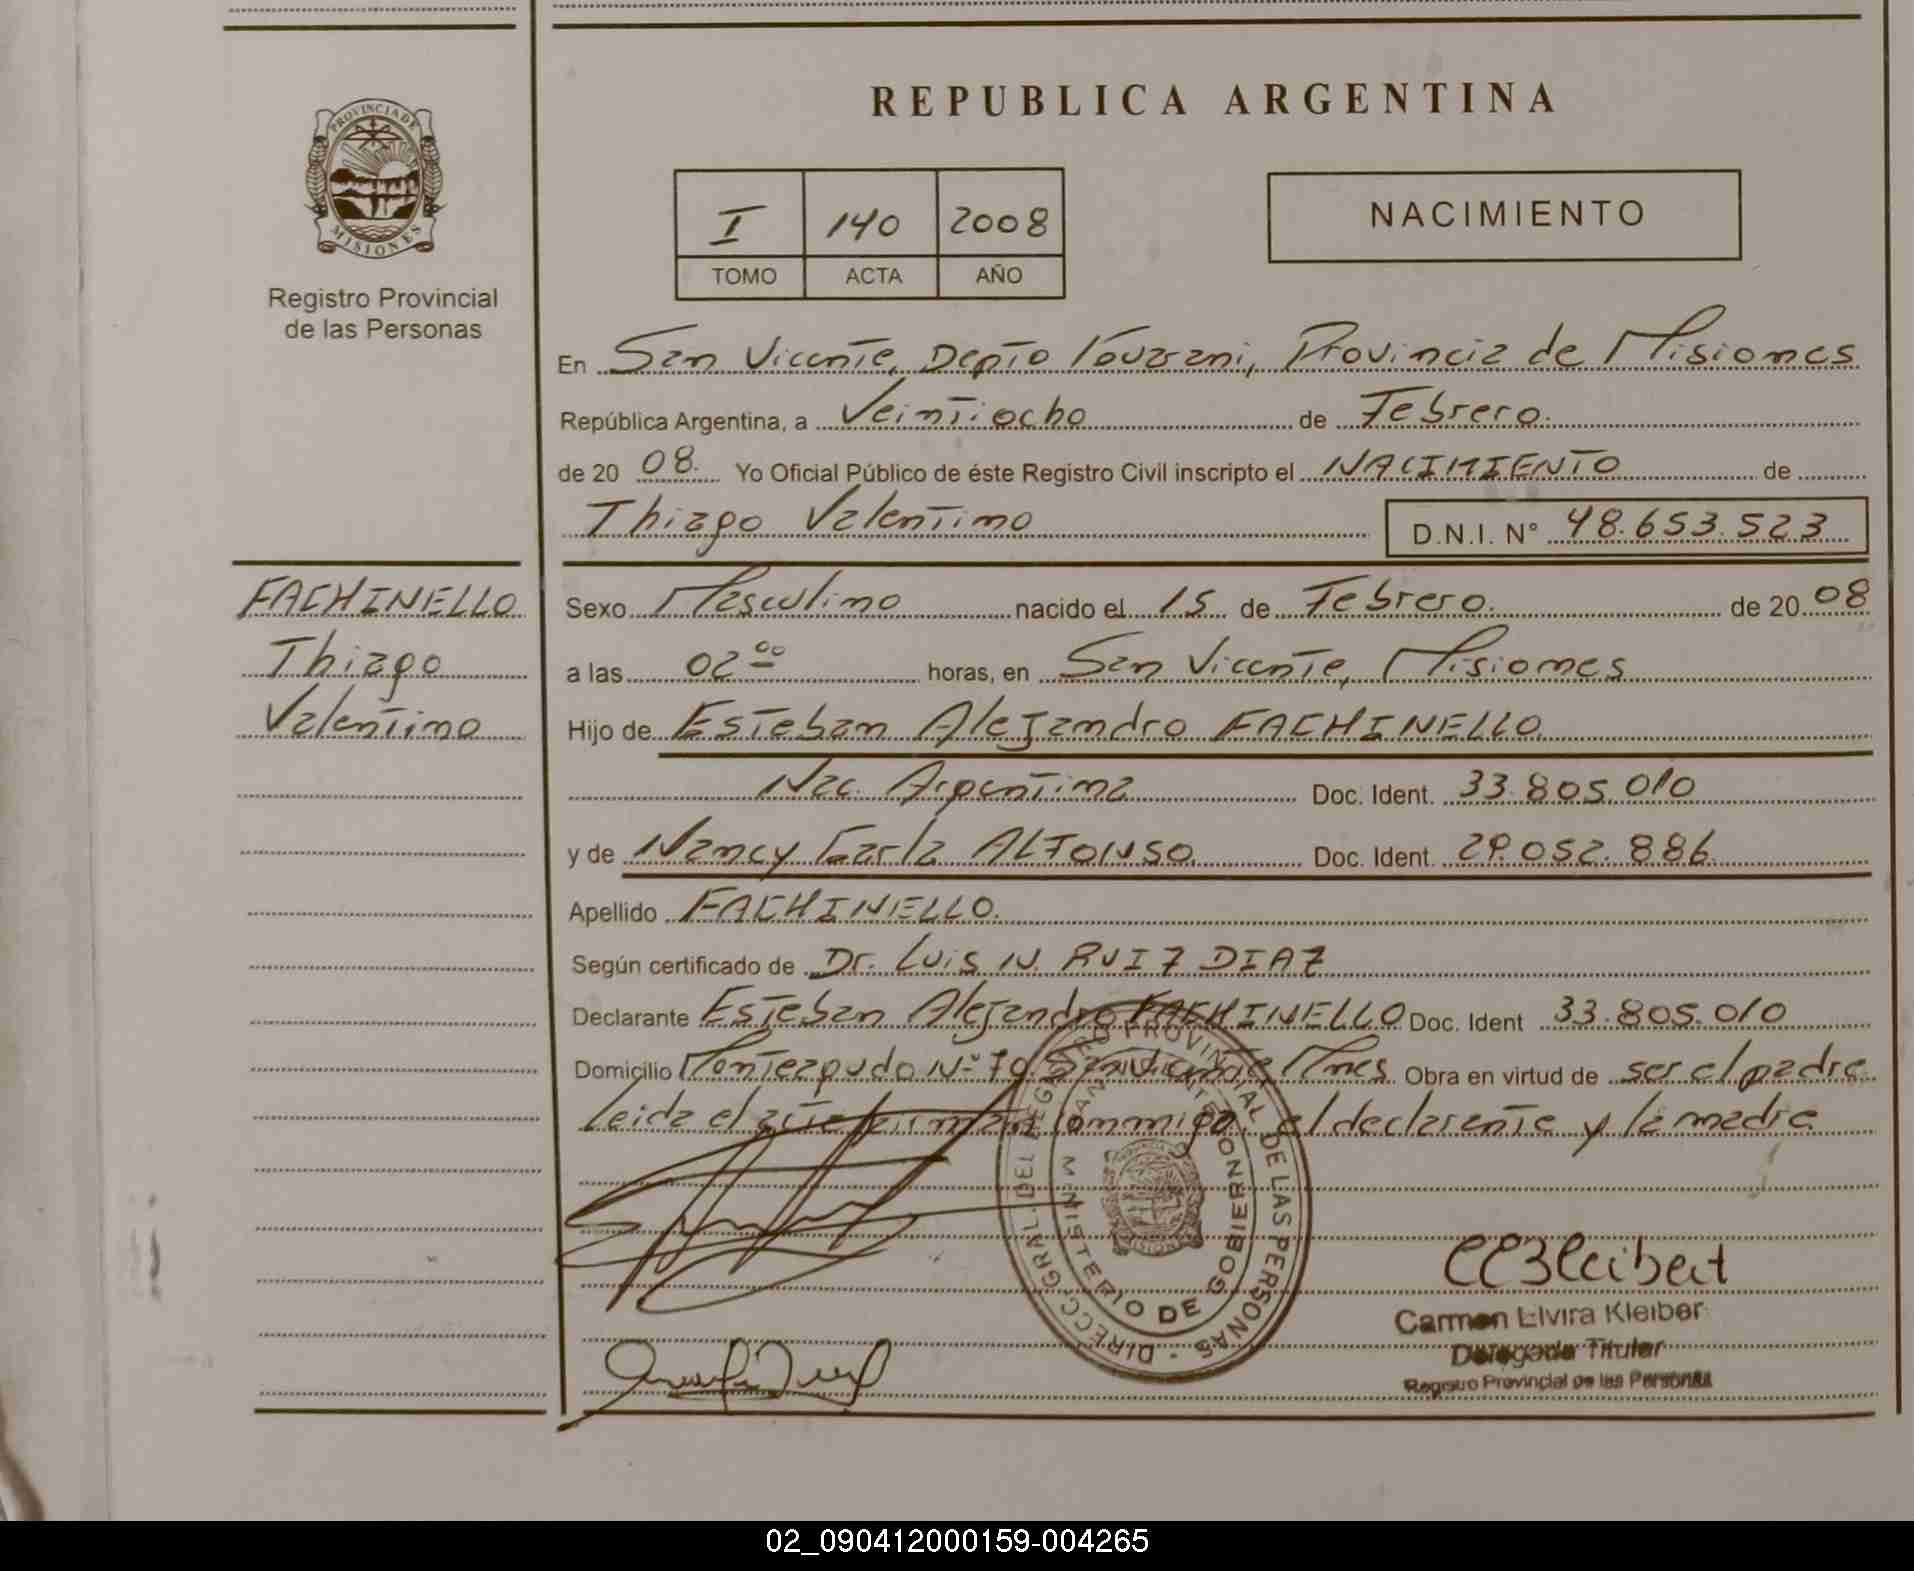 PROVINCIA DE
MISIONES
Registro Provincial
de las Personas
FACHINELLO
Thiago
Valentino
REPUBLICA ARGENTINA
I 140 2008
TOMO ACTA AÑO
NACIMIENTO
En San Vicente, Depto Guarani, Provincia de Misiones
República Argentina, a Veintiocho de Febrero.
de 20 08. Yo Oficial Público de éste Registro Civil inscripto el NACIMIENTO de
Thiago Valentino D.N.I. N° 48.653.523
Sexo Masculino nacido el 15 de Febrero. de 20 08
a las 02 00 horas, en San Vicente, Misiones
Hijo de Esteban Alejandro FACHINELLO
Nac. Argentina Doc. Ident. 33.805.010
y de Nancy Carla ALFONSO Doc. Ident. 29.052.886
Apellido FACHINELLO.
Según certificado de Dr. Luis N. RUIZ DIAZ
Declarante Esteban Alejandro FACHINELLO Doc. Ident 33.805.010
Domicilio Monteagudo N° 79 San Vicente, Mnes Obra en virtud de ser el padre
Leida el acta firman conmigo el declarante y la madre
DIRECC. GRAL. DEL REGISTRO PROVINCIAL DE LAS PERSONAS
MINISTERIO DE GOBIERNO
MISIONES
Carmen Elvira Kleiber
Delegada Titular
Registro Provincial de las Personas
02_090412000159-004265